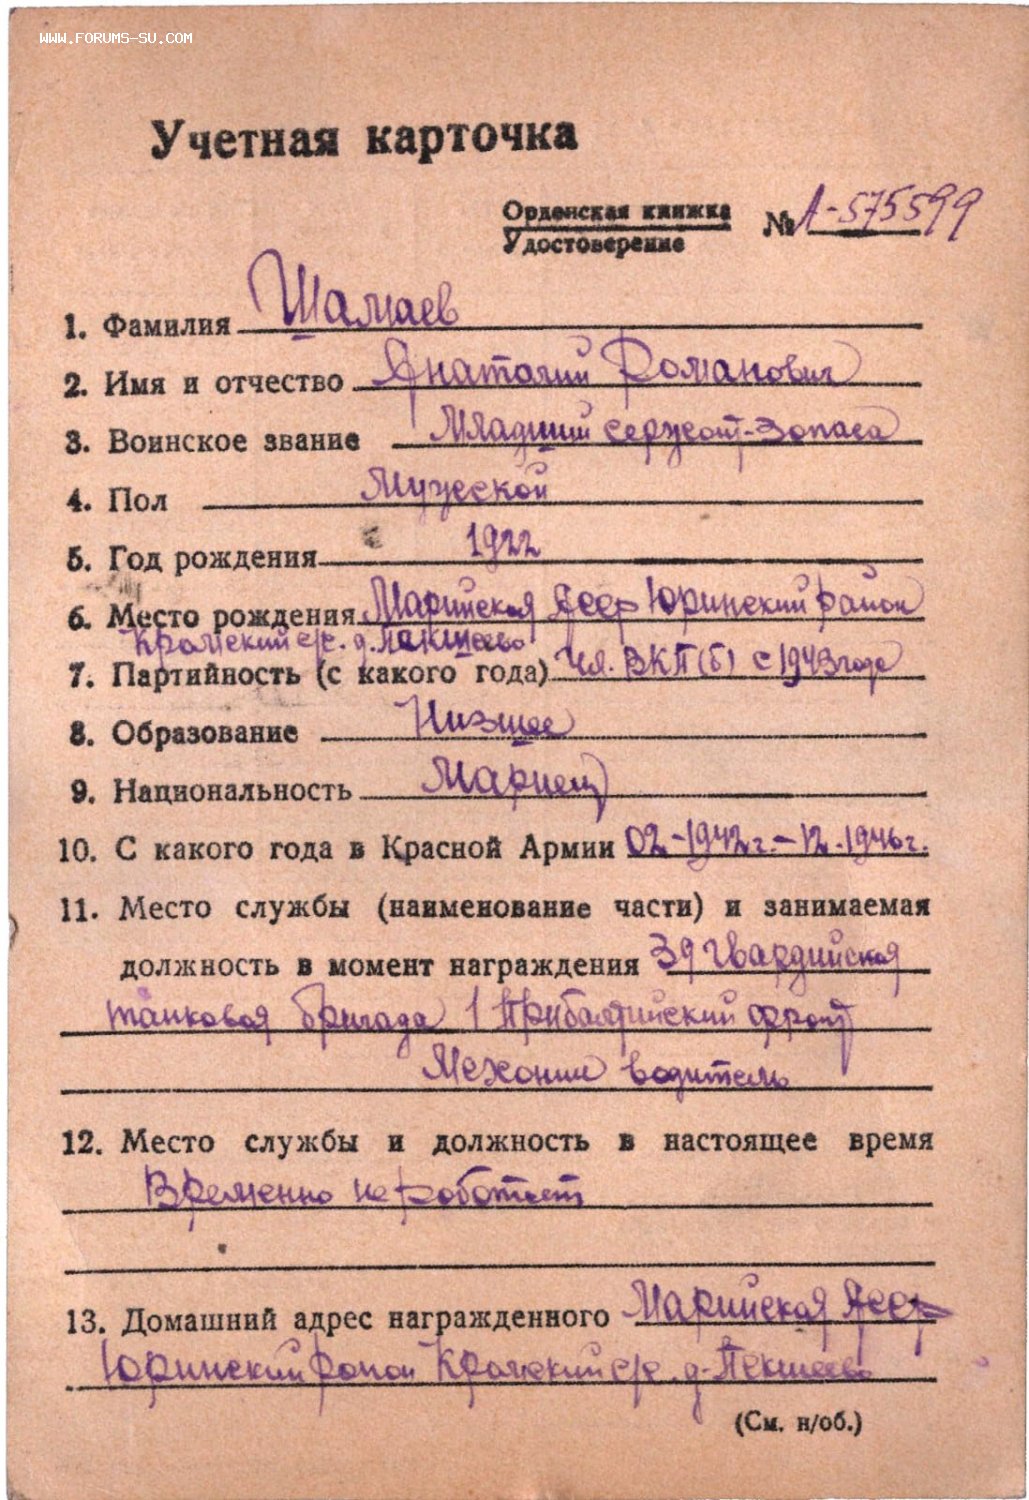 WWW.FORUMS-SU.COM
Учетная карточка
Орденская книжка
Удостоверение
№ А-575599
1. Фамилия Шамаев
2. Имя и отчество Анатолий Романович
3. Воинское звание Младший сержант-запаса
4. Пол Мужской
5. Год рождения 1922
6. Место рождения Марийская АССР Юринский район
с/с. д. Пекшеево
7. Партийность (с какого года) Чл. ВКП(б) с 1943 года
8. Образование Низшее
9. Национальность Мариец
10. С какого года в Красной Армии 02-1942г.-12.1946г.
11. Место службы (наименование части) и занимаемая
должность в момент награждения 39 гвардийская
танковая бригада 1 Прибалтийский фронт
Механик водитель
12. Место службы и должность в настоящее время
Временно не работает
13. Домашний адрес награжденного Марийская АССР
Юринский район с/с. д-Пекшеево
(См. н/об.)